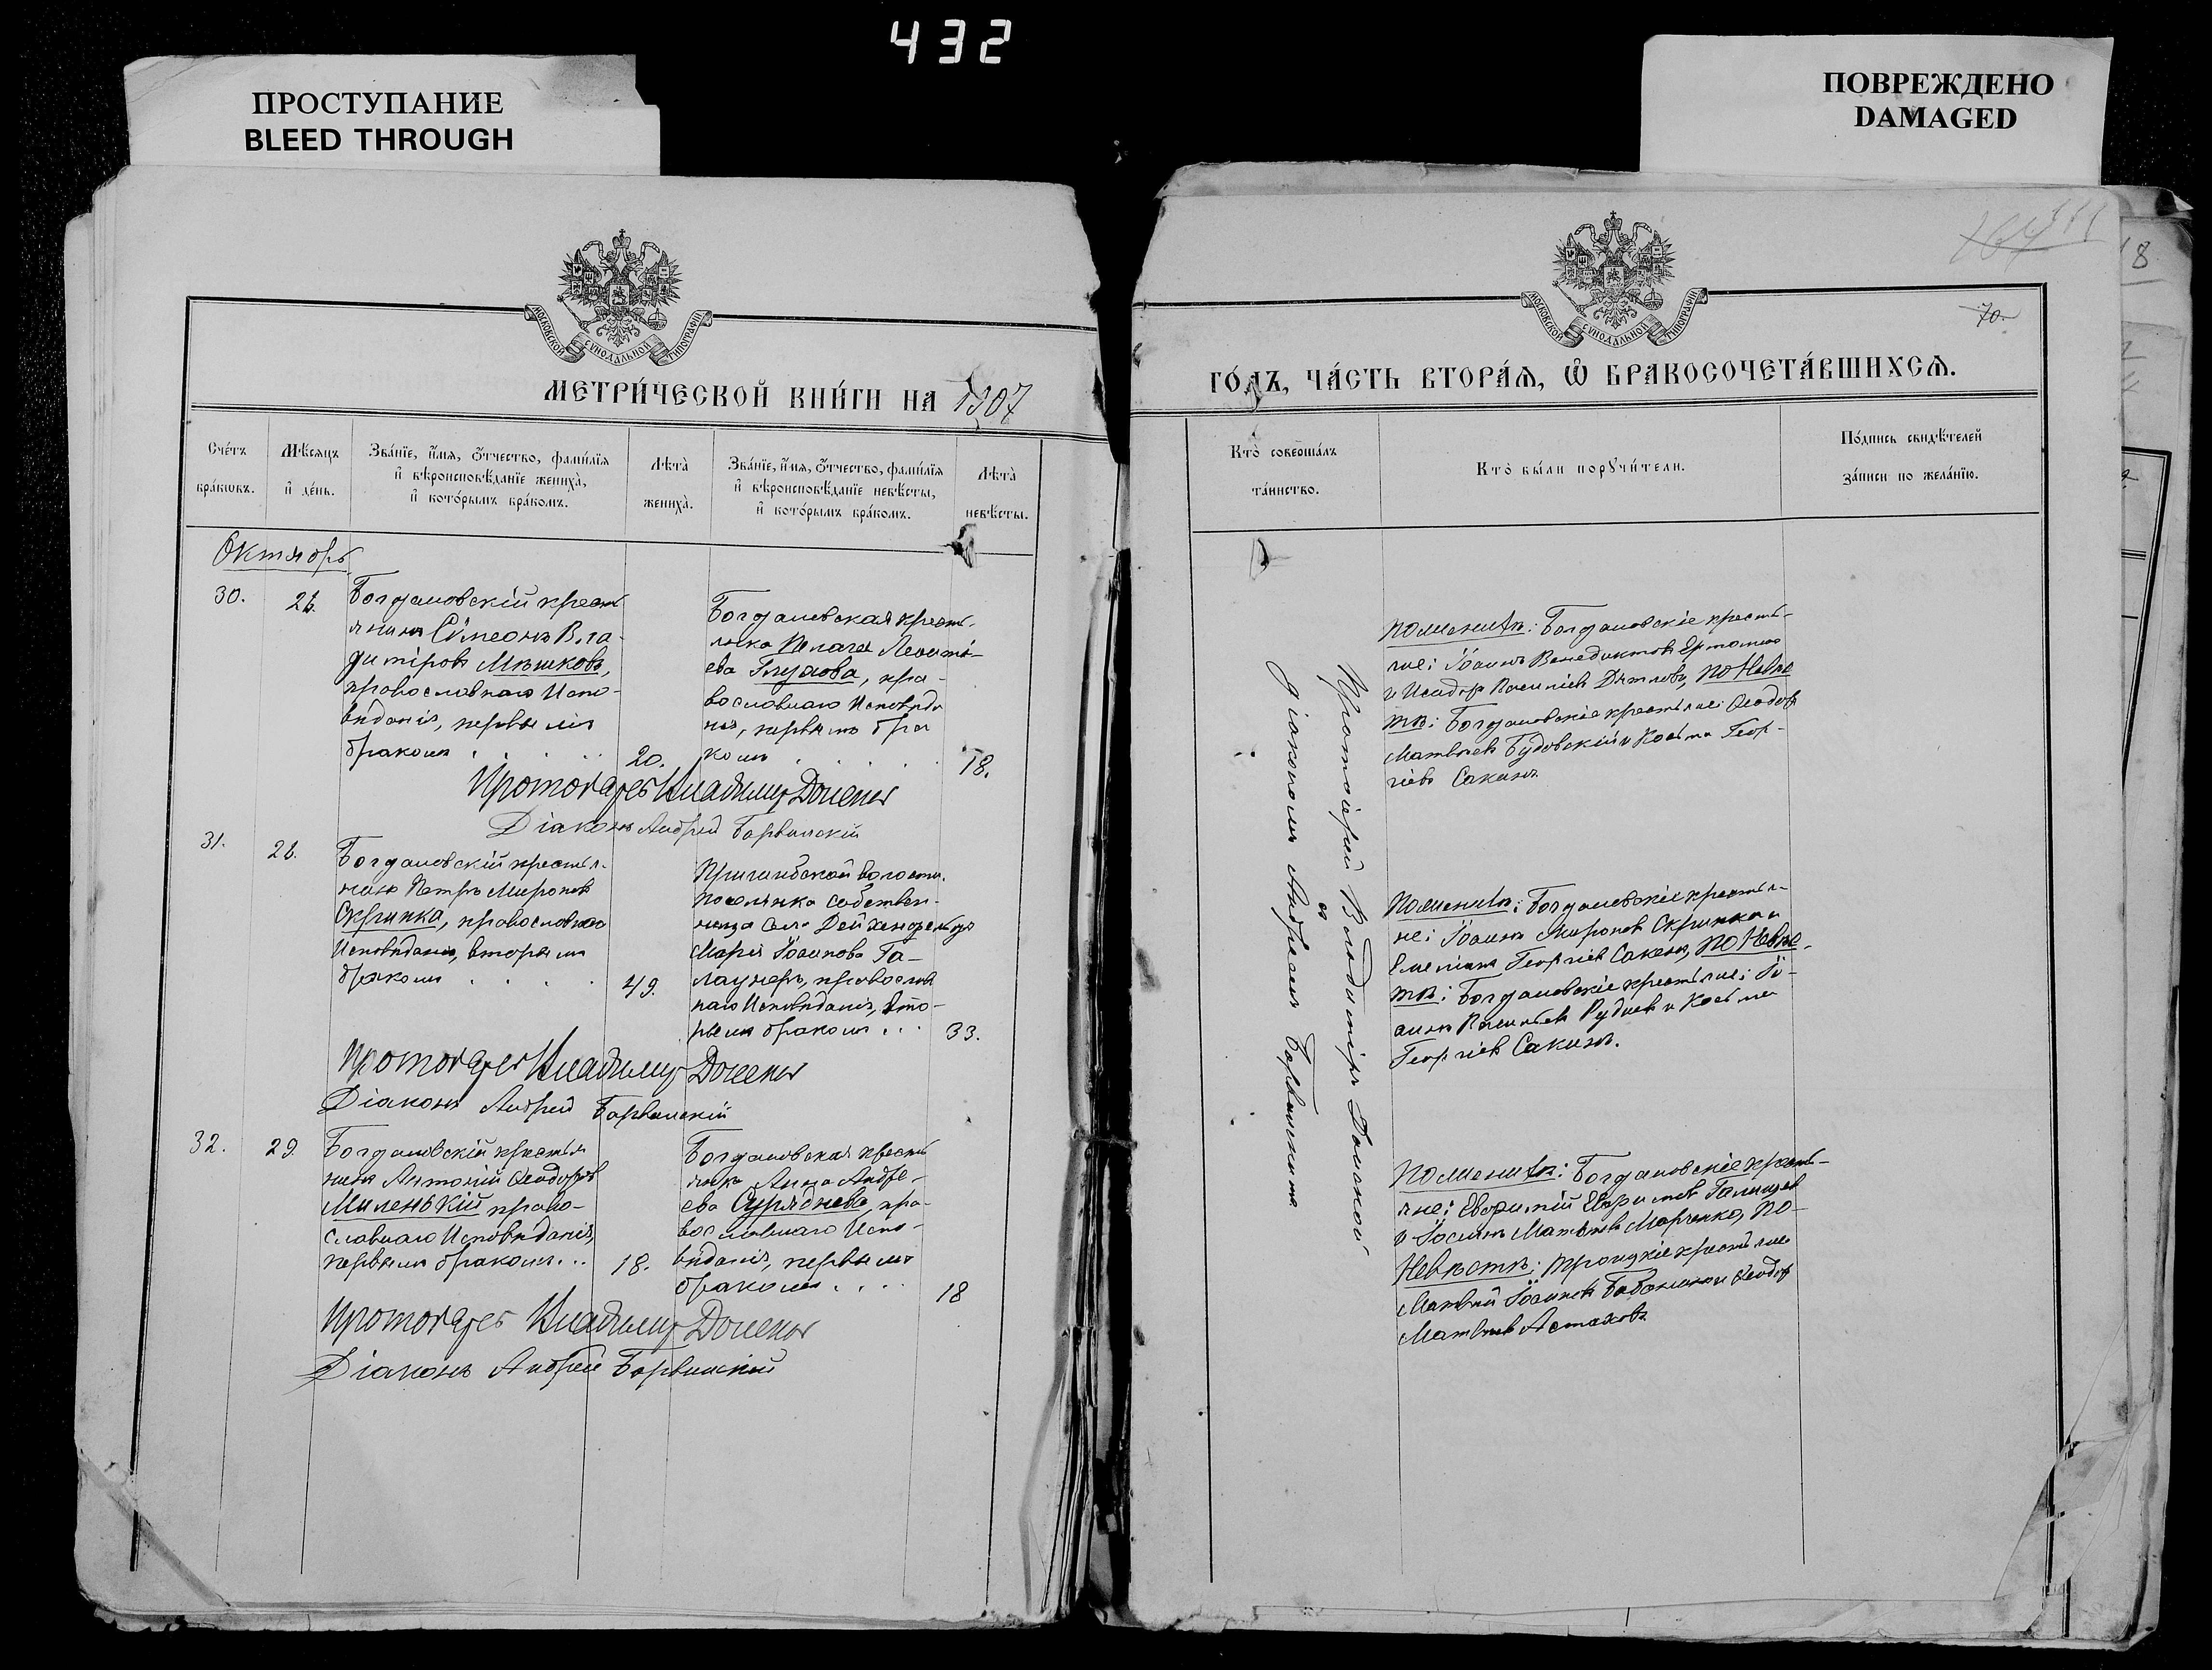 432
ПРОСТУПАНИЕ
BLEED THROUGH
ПОВРЕЖДЕНО
DAMAGED
МОСКОВСКОЙ СѴНОДАЛЬНОЙ ТИПОГРАФІИ
МЕТРИ́ЧЕСКОЙ КНИ́ГИ НА 1907
Сче́тъ
бра́ковъ.
Мѣ́сяцъ
и҆ де́нь.
Зва́нїе, и҆́мя, ѻ҆́тчество, фами́лїя
и҆ вѣроисповѣ́данїе жениха̀,
и҆ кото́рымъ бра́комъ.
Лѣ́та
жениха̀.
Зва́нїе, и҆́мя, ѻ҆́тчество, фами́лїя
и҆ вѣроисповѣ́данїе невѣ́сты,
и҆ кото́рымъ бра́комъ.
Лѣ́та
невѣ́сты.
Октябрь
30.
26.
Богдановскій кресть
янинъ Сѵмеонъ Вла-
диміровъ Мѣшковъ,
православнаго Испо-
вѣданія, первымъ
бракомъ . . . .
20.
Богдановская кресть-
янка Пелагея Леонті-
ева, пра-
вославнаго Исповѣда
нія, первымъ бра
комъ . . . .
18.
Протоіерей Владиміръ Доненко
Діаконъ Андрей Борвинскій
31.
26.
Богдановскій крестья-
нинъ Петръ Мироновъ
Скрипка, православнаго
Исповѣданія, вторымъ
бракомъ . . . .
49.
Пришибской волости,
поселянка собствен-
ница села
Марія Іоаннова Га-
лаунеръ, православ
наго Исповѣданія, вто-
рымъ бракомъ . . .
33.
Протоіерей Владиміръ Доненко
Діаконъ Андрей Борвинскій
32.
29.
Богдановскій крестья
нинъ Антоній Ѳеодоровъ
Миленькій право-
славнаго Исповѣданія,
первымъ бракомъ . . .
18.
Богдановская кресть
янка Анна Андре-
ева, пра-
вославнаго Испо-
вѣданія, первымъ
бракомъ . . . .
18
Протоіерей Владиміръ Доненко
Діаконъ Андрей Борвинскій
МОСКОВСКОЙ СѴНОДАЛЬНОЙ ТИПОГРАФІИ
70.
ГО́ДЪ, ЧА́СТЬ ВТОРА́Я, Ѽ БРАКОСОЧЕТА́ВШИХСЯ.
Кто̀ соверша́лъ
та́инство.
Кто̀ бы́ли порꙋчи́тели.
По́дпись свидѣ́телей
за́писи по жела́нїю.
Протоіерей Владиміръ Доненко
съ
діакономъ Андреемъ Борвинскимъ
По женихѣ: Богдановскіе кресть-
яне: Іоаннъ Венедиктовъ
и Исидоръ Васильевъ Дятловъ, по Невѣс
тѣ: Богдановскіе крестьяне: Ѳеодоръ
Матвѣевъ Будовскій и Косьма Геор-
гіевъ Сакунъ
По женихѣ: Богдановскіе крестья-
не: Іоаннъ Мироновъ Скрипка и
Емеліанъ Георгіевъ Сакунъ, по Невѣс-
тѣ: Богдановскіе крестьяне: Іо-
аннъ Васильевъ Рудневъ и Косьма
Георгіевъ Сакунъ.
По женихѣ: Богдановскіе кресть-
яне: Евѳимій
и Іосифъ Матвѣевъ Марченко, По-
Невѣстѣ: Троицкіе крестьяне
Матвѣй Іоанновъ и Ѳеодоръ
Матвѣевъ Астаховъ
8